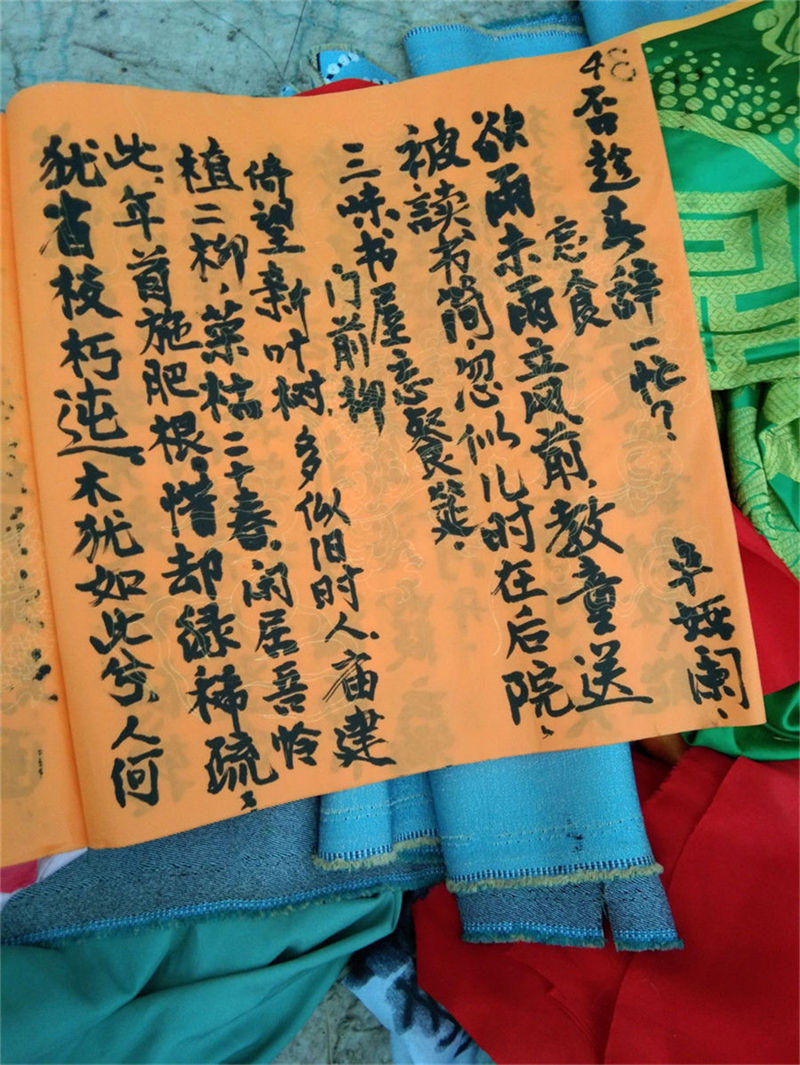 48
否趁去辞一忙？
卓娅阑、
忘食
欲雨未雨立风前，教童送
被读书简，忽似儿时在后院，
三味书屋忘餐筵．
门前柳
倚望新叶树，多似旧时人，庙建
植二柳，荣枯二十春，闲居吾怜
此，年首施肥根，惜却绿稀疏；
犹省枝朽迍，木犹如此兮，人何